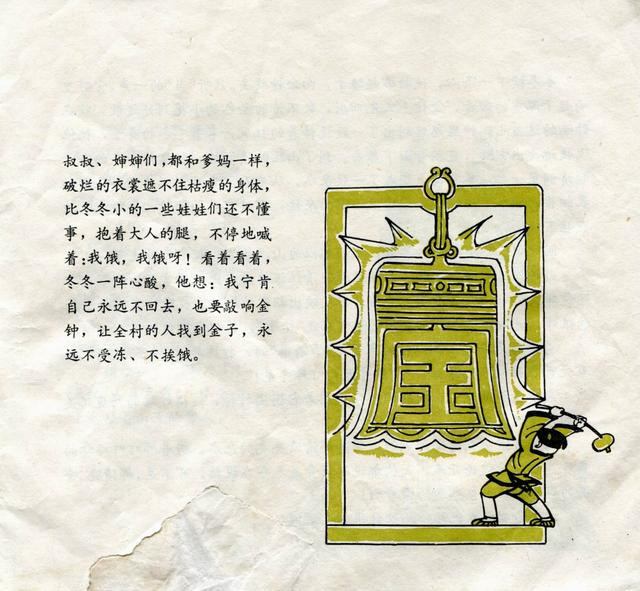 叔叔、婶婶们，都和爹妈一样，
破烂的衣裳遮不住枯瘦的身体，
比冬冬小的一些娃娃们还不懂
事，抱着大人的腿，不停地喊
着：我饿，我饿呀！看着看着，
冬冬一阵心酸，他想：我宁肯
自己永远不回去，也要敲响金
钟，让全村的人找到金子，永
远不受冻、不挨饿。